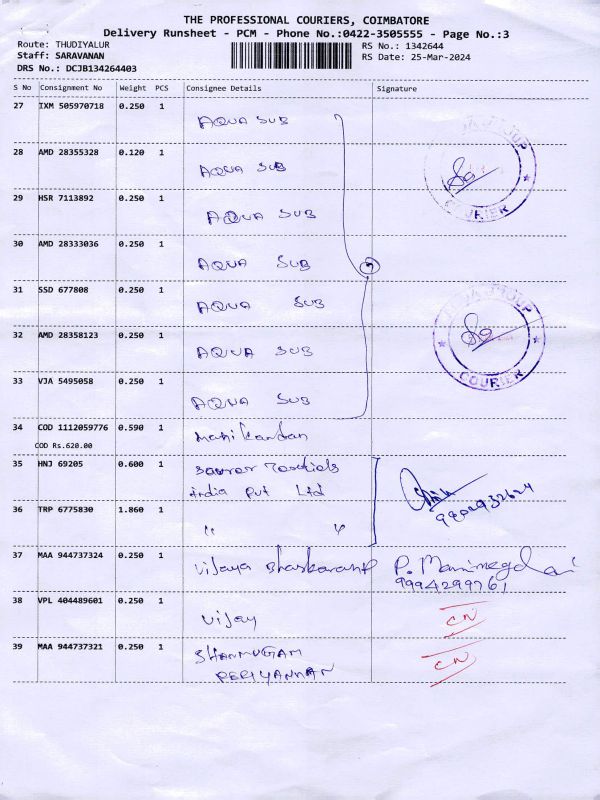 THE PROFESSIONAL COURIERS, COIMBATORE
Delivery Runsheet - PCM - Phone No.:0422-3505555 - Page No.:3
Route: THUDIYALUR
RS No.: 1342644
Staff: SARAVANAN
RS Date: 25-Mar-2024
DRS No.: DCJB134264403
S No Consignment No Weight PCS Consignee Details Signature
27 IXM 505970718 0.250 1
AQUA SUB
28 AMD 28355328 0.120 1
AQUA SUB
COURIER
29 HSR 7113892 0.250 1
AQUA SUB
30 AMD 28333036 0.250 1
AQUA SUB
7
31 SSD 677808 0.250 1
AQUA SUB
32 AMD 28358123 0.250 1
AQUA SUB
COURIER
33 VJA 5495058 0.250 1
AQUA SUB
34 COD 1112059776 0.590 1 Manikandan
COD Rs.620.00
35 HNJ 69205 0.600 1
India Pvt Ltd
36 TRP 6775830 1.860 1
" "
37 MAA 944737324 0.250 1
Vijaya Bhaskaran P. Manimegalai
9994299761
38 VPL 404489601 0.250 1
Vijay CN
39 MAA 944737321 0.250 1
SHANMUGAM CN
PERIYANNAN